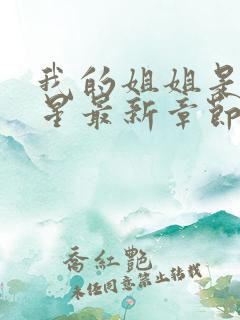 我的姐姐是
星最新章節
喬紅艷
未經同意禁止轉載